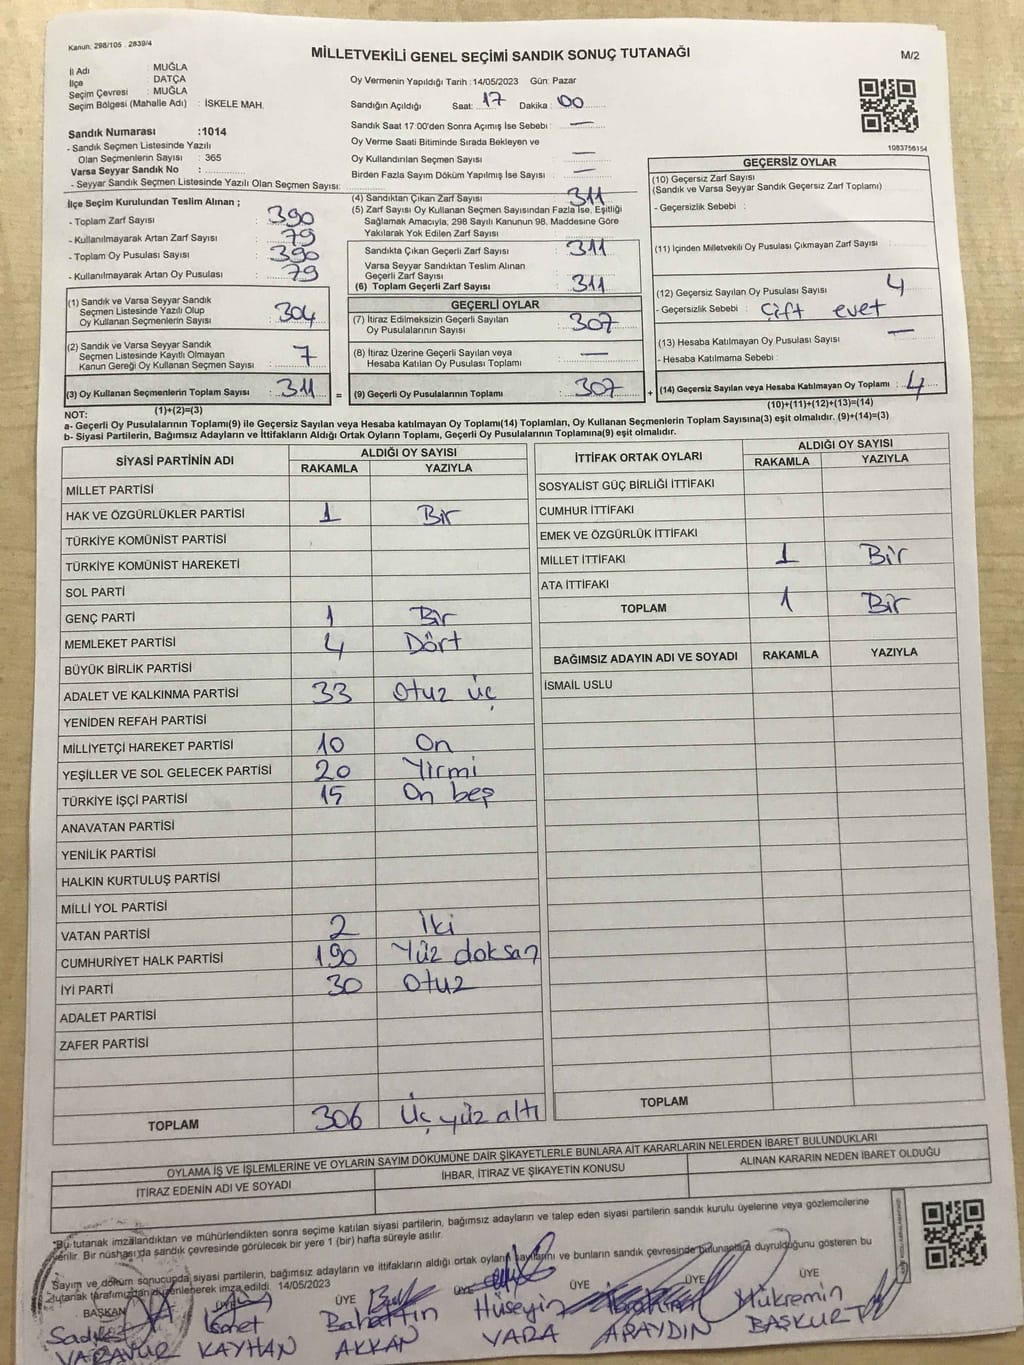 Kanun. 298/105 . 2839/4
MİLLETVEKİLİ GENEL SEÇİMİ SANDIK SONUÇ TUTANAĞI
M/2
İl Adı : MUĞLA
İlçe : DATÇA
Seçim Çevresi : MUĞLA
Seçim Bölgesi (Mahalle Adı) : İSKELE MAH.
Sandık Numarası :1014
- Sandık Seçmen Listesinde Yazılı
Olan Seçmenlerin Sayısı : 365
Varsa Seyyar Sandık No :
- Seyyar Sandık Seçmen Listesinde Yazılı Olan Seçmen Sayısı:
İlçe Seçim Kurulundan Teslim Alınan ;
- Toplam Zarf Sayısı : 390
- Kullanılmayarak Artan Zarf Sayısı : 79
- Toplam Oy Pusulası Sayısı : 390
- Kullanılmayarak Artan Oy Pusulası : 79
(1) Sandık ve Varsa Seyyar Sandık
Seçmen Listesinde Yazılı Olup
Oy Kullanan Seçmenlerin Sayısı : 304
(2) Sandık ve Varsa Seyyar Sandık
Seçmen Listesinde Kayıtlı Olmayan
Kanun Gereği Oy Kullanan Seçmen Sayısı : 7
(3) Oy Kullanan Seçmenlerin Toplam Sayısı : 311
(1)+(2)=(3)
Oy Vermenin Yapıldığı Tarih : 14/05/2023 Gün: Pazar
Sandığın Açıldığı Saat: 17 Dakika : 00
Sandık Saat 17:00'den Sonra Açımış İse Sebebi : —
Oy Verme Saati Bitiminde Sırada Bekleyen ve
Oy Kullandırılan Seçmen Sayısı : —
Birden Fazla Sayım Döküm Yapılmış İse Sayısı : —
(4) Sandıktan Çıkan Zarf Sayısı : 311
(5) Zarf Sayısı Oy Kullanan Seçmen Sayısından Fazla İse, Eşitliği
Sağlamak Amacıyla, 298 Sayılı Kanunun 98. Maddesine Göre
Yakılarak Yok Edilen Zarf Sayısı :
Sandıkta Çıkan Geçerli Zarf Sayısı : 311
Varsa Seyyar Sandıktan Teslim Alınan
Geçerli Zarf Sayısı :
(6) Toplam Geçerli Zarf Sayısı : 311
GEÇERLİ OYLAR
(7) İtiraz Edilmeksizin Geçerli Sayılan
Oy Pusulalarının Sayısı : 307
(8) İtiraz Üzerine Geçerli Sayılan veya
Hesaba Katılan Oy Pusulası Toplamı : —
= (9) Geçerli Oy Pusulalarının Toplamı : 307 +
1083756154
GEÇERSİZ OYLAR
(10) Geçersiz Zarf Sayısı
(Sandık ve Varsa Seyyar Sandık Geçersiz Zarf Toplamı)
- Geçersizlik Sebebi :
(11) İçinden Milletvekili Oy Pusulası Çıkmayan Zarf Sayısı :
(12) Geçersiz Sayılan Oy Pusulası Sayısı : 4
- Geçersizlik Sebebi : Çift evet
(13) Hesaba Katılmayan Oy Pusulası Sayısı : —
- Hesaba Katılmama Sebebi :
(14) Geçersiz Sayılan veya Hesaba Katılmayan Oy Toplamı : 4
(10)+(11)+(12)+(13)=(14)
NOT:
a- Geçerli Oy Pusulalarının Toplamı(9) ile Geçersiz Sayılan veya Hesaba katılmayan Oy Toplamı(14) Toplamları, Oy Kullanan Seçmenlerin Toplam Sayısına(3) eşit olmalıdır. (9)+(14)=(3)
b- Siyasi Partilerin, Bağımsız Adayların ve İttifakların Aldığı Ortak Oyların Toplamı, Geçerli Oy Pusulalarının Toplamına(9) eşit olmalıdır.
SİYASİ PARTİNİN ADI ALDIĞI OY SAYISI
RAKAMLA YAZIYLA
MİLLET PARTİSİ
HAK VE ÖZGÜRLÜKLER PARTİSİ 1 Bir
TÜRKİYE KOMÜNİST PARTİSİ
TÜRKİYE KOMÜNİST HAREKETİ
SOL PARTİ
GENÇ PARTİ 1 Bir
MEMLEKET PARTİSİ 4 Dört
BÜYÜK BİRLİK PARTİSİ
ADALET VE KALKINMA PARTİSİ 33 Otuz üç
YENİDEN REFAH PARTİSİ
MİLLİYETÇİ HAREKET PARTİSİ 10 On
YEŞİLLER VE SOL GELECEK PARTİSİ 20 Yirmi
TÜRKİYE İŞÇİ PARTİSİ 15 On beş
ANAVATAN PARTİSİ
YENİLİK PARTİSİ
HALKIN KURTULUŞ PARTİSİ
MİLLİ YOL PARTİSİ
VATAN PARTİSİ 2 İki
CUMHURİYET HALK PARTİSİ 190 Yüz doksan
İYİ PARTİ 30 Otuz
ADALET PARTİSİ
ZAFER PARTİSİ
TOPLAM 306 Üç yüz altı
İTTİFAK ORTAK OYLARI ALDIĞI OY SAYISI
RAKAMLA YAZIYLA
SOSYALİST GÜÇ BİRLİĞİ İTTİFAKI
CUMHUR İTTİFAKI
EMEK VE ÖZGÜRLÜK İTTİFAKI
MİLLET İTTİFAKI 1 Bir
ATA İTTİFAKI
TOPLAM 1 Bir
BAĞIMSIZ ADAYIN ADI VE SOYADI RAKAMLA YAZIYLA
İSMAİL USLU
TOPLAM
OYLAMA İŞ VE İŞLEMLERİNE VE OYLARIN SAYIM DÖKÜMÜNE DAİR ŞİKAYETLERLE BUNLARA AİT KARARLARIN NELERDEN İBARET BULUNDUKLARI
İTİRAZ EDENİN ADI VE SOYADI İHBAR, İTİRAZ VE ŞİKAYETİN KONUSU ALINAN KARARIN NEDEN İBARET OLDUĞU
Bu tutanak imzalandıktan ve mühürlendikten sonra seçime katılan siyasi partilerin, bağımsız adayların ve talep eden siyasi partilerin sandık kurulu üyelerine veya gözlemcilerine
verilir. Bir nüshası da sandık çevresinde görülecek bir yere 1 (bir) hafta süreyle asılır.
Sayım ve döküm sonucunda siyasi partilerin, bağımsız adayların ve ittifakların aldığı ortak oyların sayılarını ve bunların sandık çevresinde bulunanlara duyrulduğunu gösteren bu
tutanak tarafımızdan düzenlenerek imza edildi. 14/05/2023
BAŞKAN ÜYE ÜYE ÜYE ÜYE ÜYE ÜYE
İsmet Bahattin Hüseyin İbrahim Mükremin
VARAVUR KAYHAN AKKAN VARA APAYDIN BAŞKURT